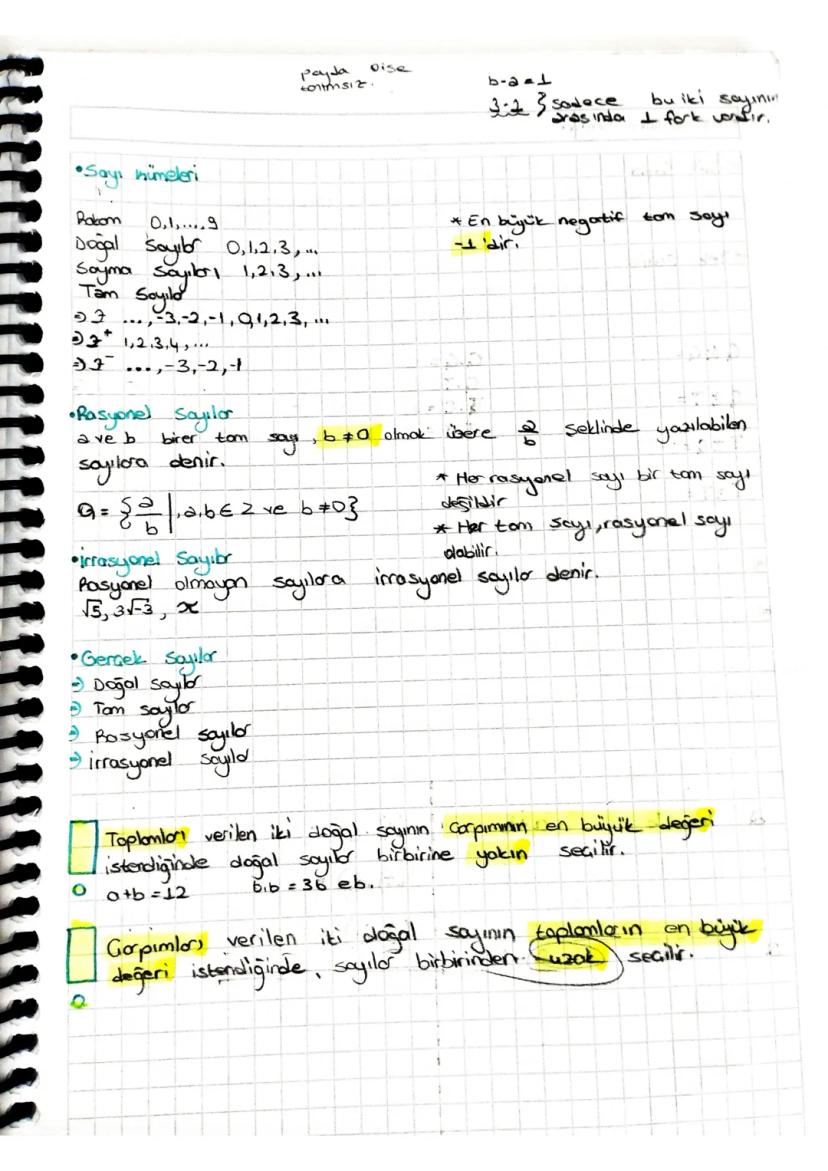 payda 0ise
tanımsız.
b-a=1
3-2 } sadece bu iki sayının
arasında 1 fark vardır.
•Sayı kümeleri
Rakam 0,1,...,9
Doğal Sayılar 0,1,2,3,...
Sayma Sayıları 1,2,3,...
Tam Sayılar
⇒Z ...,-3,-2,-1,0,1,2,3,...
⇒Z⁺ 1,2,3,4,...
⇒Z⁻ ...,-3,-2,-1
* En büyük negatif tam sayı
-1'dir.
•Rasyonel Sayılar
a ve b birer tam sayı, b≠0 olmak üzere a/b şeklinde yazılabilen
sayılara denir.
Q = {a/b |,a,b∈Z ve b≠0}
* Her rasyonel sayı bir tam sayı
değildir
* Her tam sayı, rasyonel sayı
olabilir.
•irrasyonel Sayılar
Rasyonel olmayan sayılara irrasyonel sayılar denir.
√5, 3√-3, x
•Gerçek Sayılar
→ Doğal sayılar
→ Tam sayılar
→ Rasyonel sayılar
→ irrasyonel sayılar
Toplamları verilen iki doğal sayının çarpımının en büyük değeri
istendiğinde doğal sayılar birbirine yakın seçilir.
a+b=12 b.b=36 eb.
Çarpımları verilen iki doğal sayının toplamların en büyük
değeri istendiğinde, sayılar birbirinden uzak seçilir.